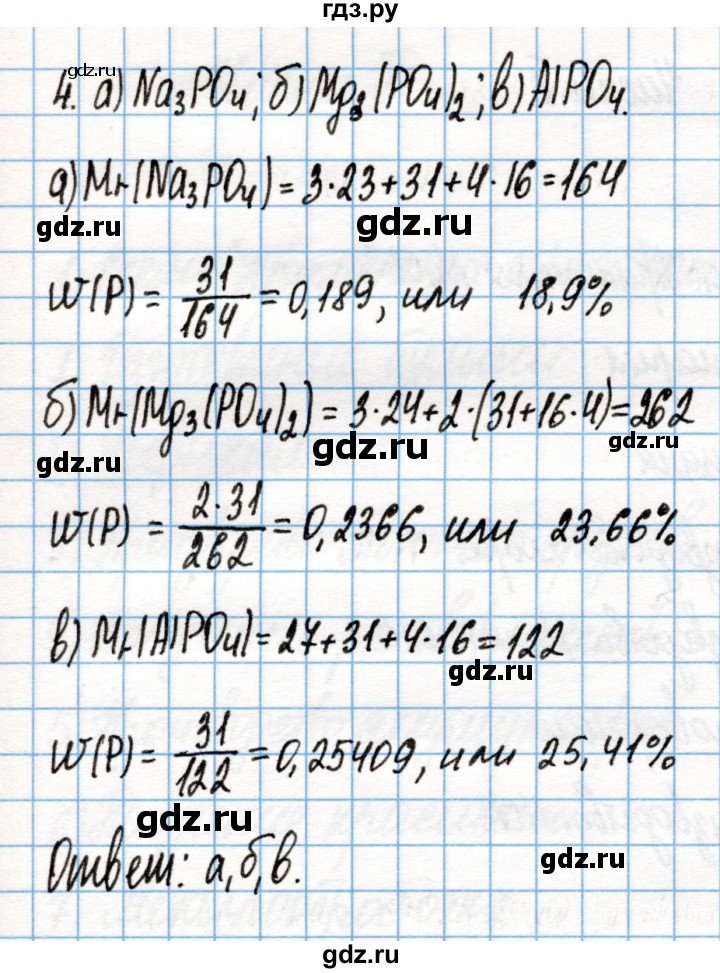 гдз.ру
gdz.ru
4. а) Na₃PO₄; б) Mg₃(PO₄)₂; в) AlPO₄.
gdz.ru
а) Mr(Na₃PO₄) = 3·23+31+4·16=164
gdz.ru gdz.ru
W(P) = 31/164 = 0,189, или 18,9%
б) Mr(Mg₃(PO₄)₂) = 3·24+2·(31+16·4)=262
gdz.ru gdz.ru gdz.ru
W(P) = 2·31/262 = 0,2366, или 23,66%
в) Mr(AlPO₄)=27+31+4·16=122
gdz.ru
W(P) = 31/122 = 0,25409, или 25,41%
gdz.ru
Ответ: а, б, в.
gdz.ru
gdz.ru